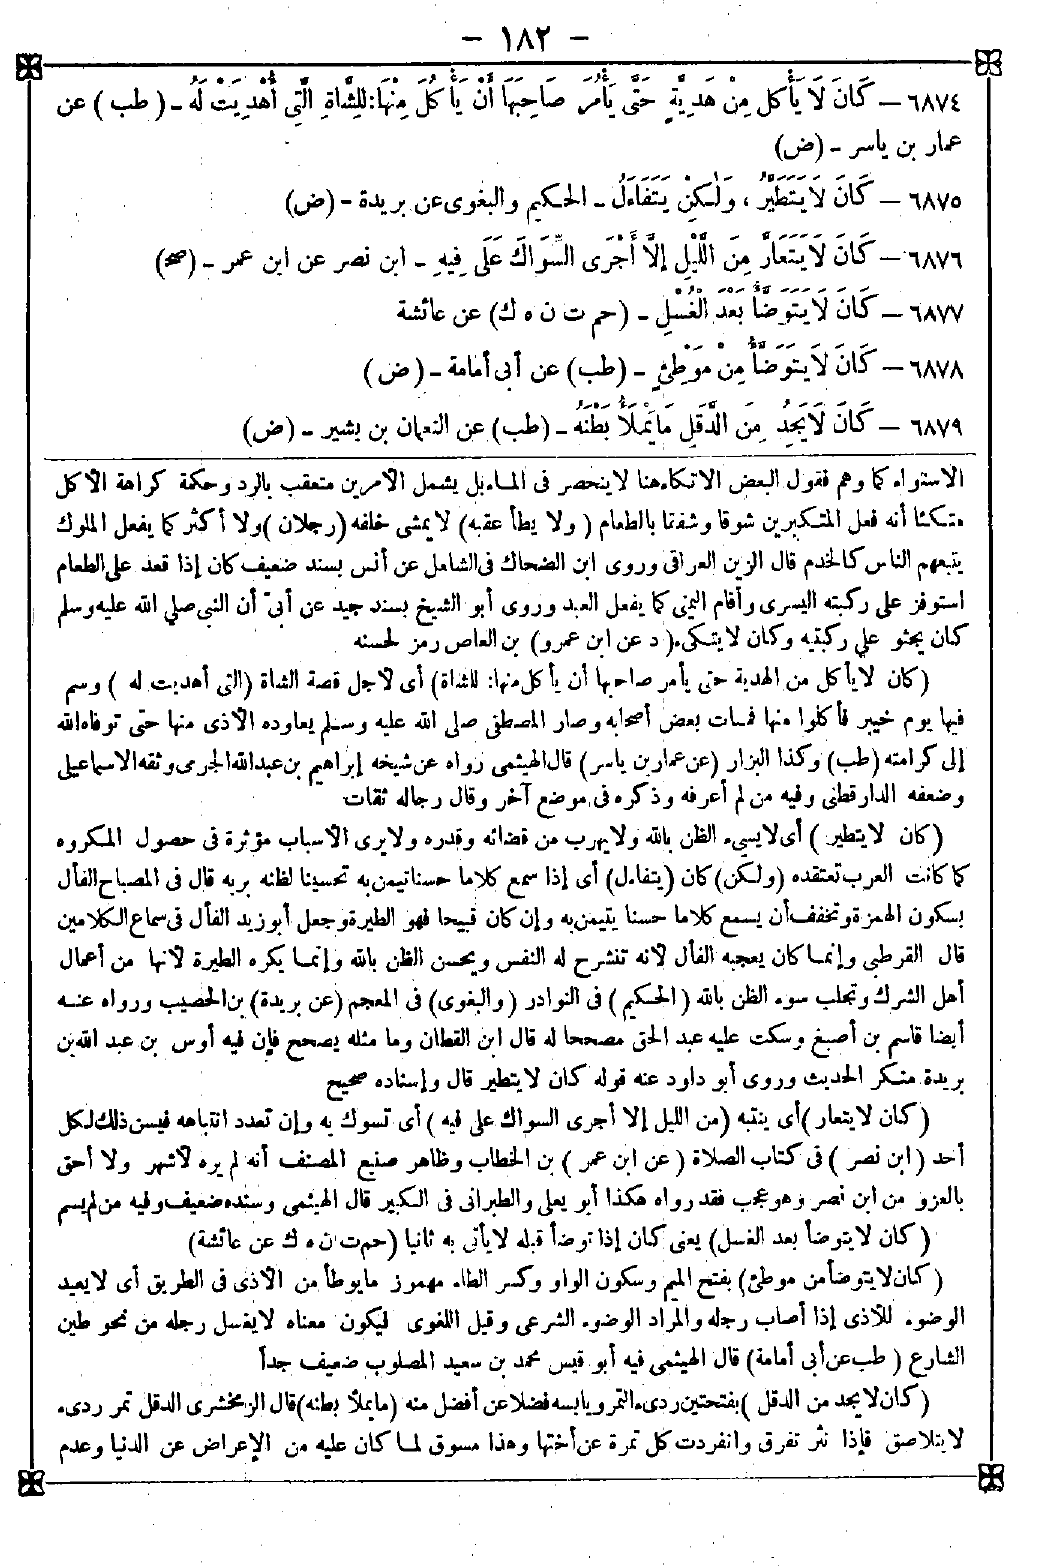 – ١٨٢ –
٦٨٧٤ – كَانَ لَا يَأْكُلُ مِنْ هَدِيَّةٍ حَتَّى يَأْمُرَ صَاحِبَهَا أَنْ يَأْكُلَ مِنْهَا: لِلشَّاةِ الَّتِي أُهْدِيَتْ لَهُ – (طب) عن
عمار بن ياسر – (ض)
٦٨٧٥ – كَانَ لَا يَتَطَيَّرُ ، وَلَكِنْ يَتَفَاءَلُ – الحكيم والبغوى عن بريدة – (ض)
٦٨٧٦ – كَانَ لَا يَتَعَارُّ مِنَ اللَّيْلِ إِلَّا أَجْرَى السِّوَاكَ عَلَى فِيهِ – ابن نصر عن ابن عمر – (صح)
٦٨٧٧ – كَانَ لَا يَتَوَضَّأُ بَعْدَ الْغُسْلِ – (حم ت ن ه ك) عن عائشة
٦٨٧٨ – كَانَ لَا يَتَوَضَّأُ مِنْ مَوْطِئٍ – (طب) عن أبى أمامة – (ض)
٦٨٧٩ – كَانَ لَا يَجِدُ مِنَ الدَّقَلِ مَا يَمْلَأُ بَطْنَهُ – (طب) عن النعمان بن بشير – (ض)
الاستواء كما وهم فقول البعض الاتكاء هنا لا ينحصر فى المائل بل يشمل الأمرين متعقب بالرد وحكمة كراهة الأكل
متكئا أنه فعل المتكبرين شوقا وشغفا بالطعام (ولا يطأ عقبه) لا يمشى خلفه (رجلان) ولا أكثر كما يفعل الملوك
يتبعهم الناس كالخدم قال الزين العراقى وروى ابن الضحاك فى الشمائل عن أنس بسند ضعيف كان إذا قعد على الطعام
استوفز على ركبته اليسرى وأقام اليمنى كما يفعل العبد وروى أبو الشيخ بسند جيد عن أبىّ أن النبى صلى الله عليه وسلم
كان يجثو على ركبتيه وكان لا يتكىء (د عن ابن عمرو) بن العاص رمز لحسنه
(كان لا يأكل من الهدية حتى يأمر صاحبها أن يأكل منها: للشاة) أى لأجل قصة الشاة (التى أهديت له) وسم
فيها يوم خيبر فأكلوا منها فمات بعض أصحابه وصار المصطفى صلى الله عليه وسلم يعاوده الأذى منها حتى توفاه الله
إلى كرامته (طب) وكذا البزار (عن عمار بن ياسر) قال الهيثمى رواه عن شيخه إبراهيم بن عبد الله الجرمى وثقه الاسماعيلى
وضعفه الدارقطنى وفيه من لم أعرفه وذكره فى موضع آخر وقال رجاله ثقات
(كان لا يتطير) أى لا يسىء الظن بالله ولا يهرب من قضائه وقدره ولا يرى الأسباب مؤثرة فى حصول المكروه
كما كانت العرب تعتقده (ولكن) كان (يتفاءل) أى إذا سمع كلاما حسنا تيمن به تحسينا لظنه بربه قال فى المصباح الفأل
بسكون الهمزة وتخفف أن يسمع كلاما حسنا يتيمن به وإن كان قبيحا فهو الطيرة وجعل أبو زيد الفأل فى سماع الكلامين
قال القرطبى وإنما كان يعجبه الفأل لأنه تنشرح له النفس ويحسن الظن بالله وإنما يكره الطيرة لأنها من أعمال
أهل الشرك وتجلب سوء الظن بالله (الحكيم) فى النوادر (والبغوى) فى المعجم (عن بريدة) بن الحصيب ورواه عنه
أيضا قاسم بن أصبغ وسكت عليه عبد الحق مصححا له قال ابن القطان وما مثله يصحح فإن فيه أوس بن عبد الله بن
بريدة منكر الحديث وروى أبو داود عنه قوله كان لا يتطير قال وإسناده صحيح
(كان لا يتعار) أى ينتبه (من الليل إلا أجرى السواك على فيه) أى تسوك به وإن تعدد انتباهه فيسن ذلك لكل
أحد (ابن نصر) فى كتاب الصلاة (عن ابن عمر) بن الخطاب وظاهر صنيع المصنف أنه لم يره لأشهر ولا أحق
بالعزو من ابن نصر وهو عجب فقد رواه هكذا أبو يعلى والطبرانى فى الكبير قال الهيثمى وسنده ضعيف وفيه من لم يسم
(كان لا يتوضأ بعد الغسل) يعنى كان إذا توضأ قبله لا يأتى به ثانيا (حم ت ن ه ك عن عائشة)
(كان لا يتوضأ من موطئ) بفتح الميم وسكون الواو وكسر الطاء مهموز ما يوطأ من الأذى فى الطريق أى لا يعيد
الوضوء للأذى إذا أصاب رجله والمراد الوضوء الشرعى وقيل اللغوى ليكون معناه لا يغسل رجله من نحو طين
الشارع (طب عن أبى أمامة) قال الهيثمى فيه أبو قيس محمد بن سعيد المصلوب ضعيف جداً
(كان لا يجد من الدقل) بفتحتين ردىء التمر ويابسه فضلا عن أفضل منه (ما يملأ بطنه) قال الزمخشرى الدقل تمر ردىء
لا يتلاصق فإذا نثر تفرق وانفردت كل تمرة عن أختها وهذا مسوق لما كان عليه من الإعراض عن الدنيا وعدم